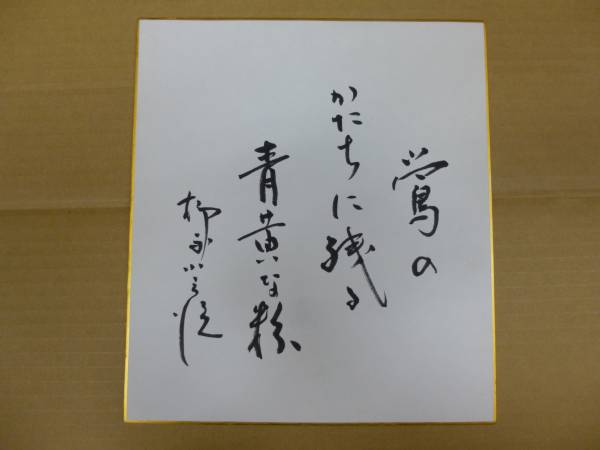 鶯の
かたちに残る
青黄な粉
柳家小三治